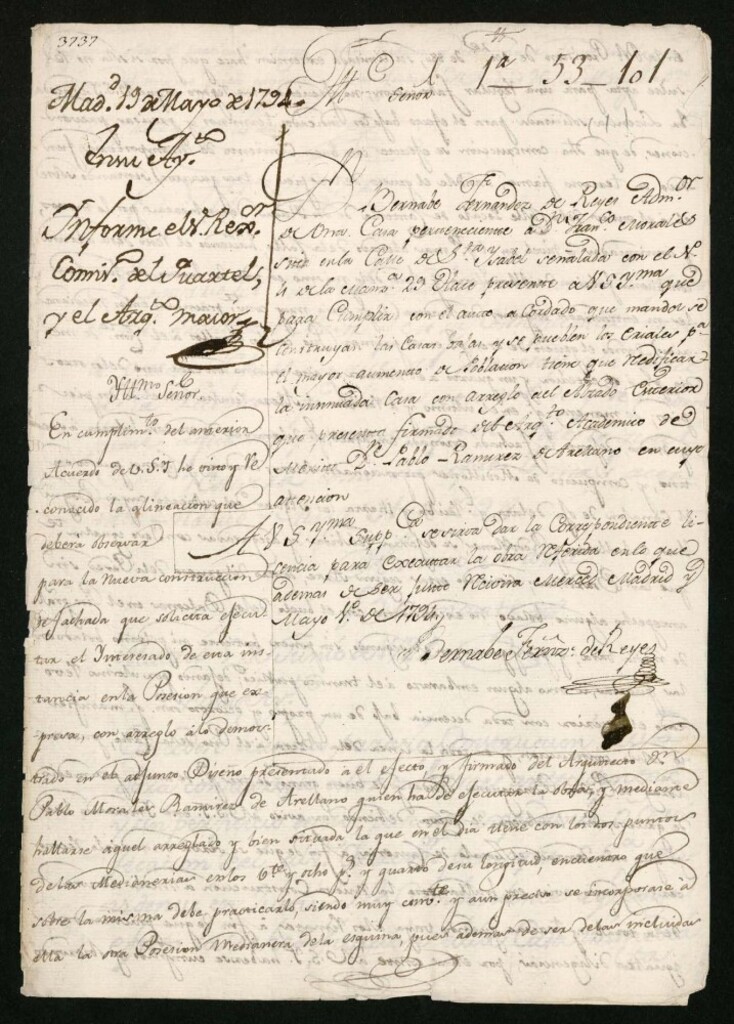 3737
1ª 53 101
Señor
Madᵈ 19 de Mayo de 1794.
En su Ay.ᵗᵒ
Informe el S.ʳ Rexᵒʳ
Comisᵒ. del Quartel,
y el Arqᵒ. maior
D. Bernabe Fernandez de Reyes Adm.ᵒʳ
de una Casa perteneciente a Dⁿ Franᶜᵒ Morales
sita en la Calle de Sᵗᵃ Ysabel señalada con el Nº
4 de la manzᵃ 29 Hace presente a V S Yᵐᵃ que
para Cumplir con el auto acordado que manda se
construyan las Casas bajas y se pueblen los eriales pᵃ
el mayor aumento de Poblacion tiene que Redificar
la innuniada Casa con arreglo del Alzado Exterior
que presenta firmado del Arqᵗᵒ Academico de
Merito Dⁿ Pablo Ramirez de Arellano en cuya
atencion
A V S Yᵐᵃ Suppᶜᵃ se sirva dar la Correspondiente li-
cencia para executar la obra Referida en lo que
ademas de ser Justo Recivira Merced Madrid y
Mayo 1º de 1794
Bernabe Fernzⁿ. de Reyes
Yllmo Señor
En cumplimᵗᵒ del anterior
Acuerdo de V.S.I he visto y Re
conocido la alineacion que
deberá observar
para la nueva construccion
de fachada que solicita execu
tar el Interesado de esta ins-
tancia en la Posesion que ex-
presa, con arreglo á lo demos-
trado en el adjunto Diseño presentado a el efecto, y firmado del Arquitecto Dⁿ
Pablo Morales Ramirez de Arellano quien ha de executar la obra, y mediante
hallarse aquel arreglado y bien situada la que en el dia tiene con los dos puntos
de las Medianerias en los 6ᵗᵃ y ocho pˢ y quarto de su longitud, encuentro que
sobre la misma debe practicarlo, siendo muy convᵗᵉ y aun preciso se incorporase á
esta la otra Posesion Medianera de la esquina, pues ademas de ser de las incluidas